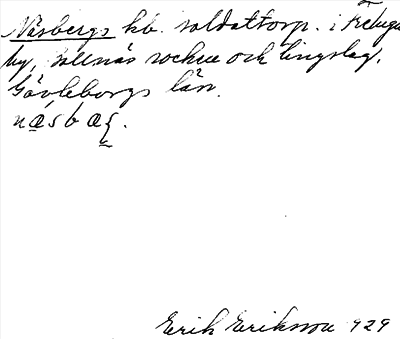 Näsbergs kb. soldattorp. i Freluga
by, Bollnäs socken och tingslag,
Gävleborgs län.
næsbæ
Erik Eriksson 929